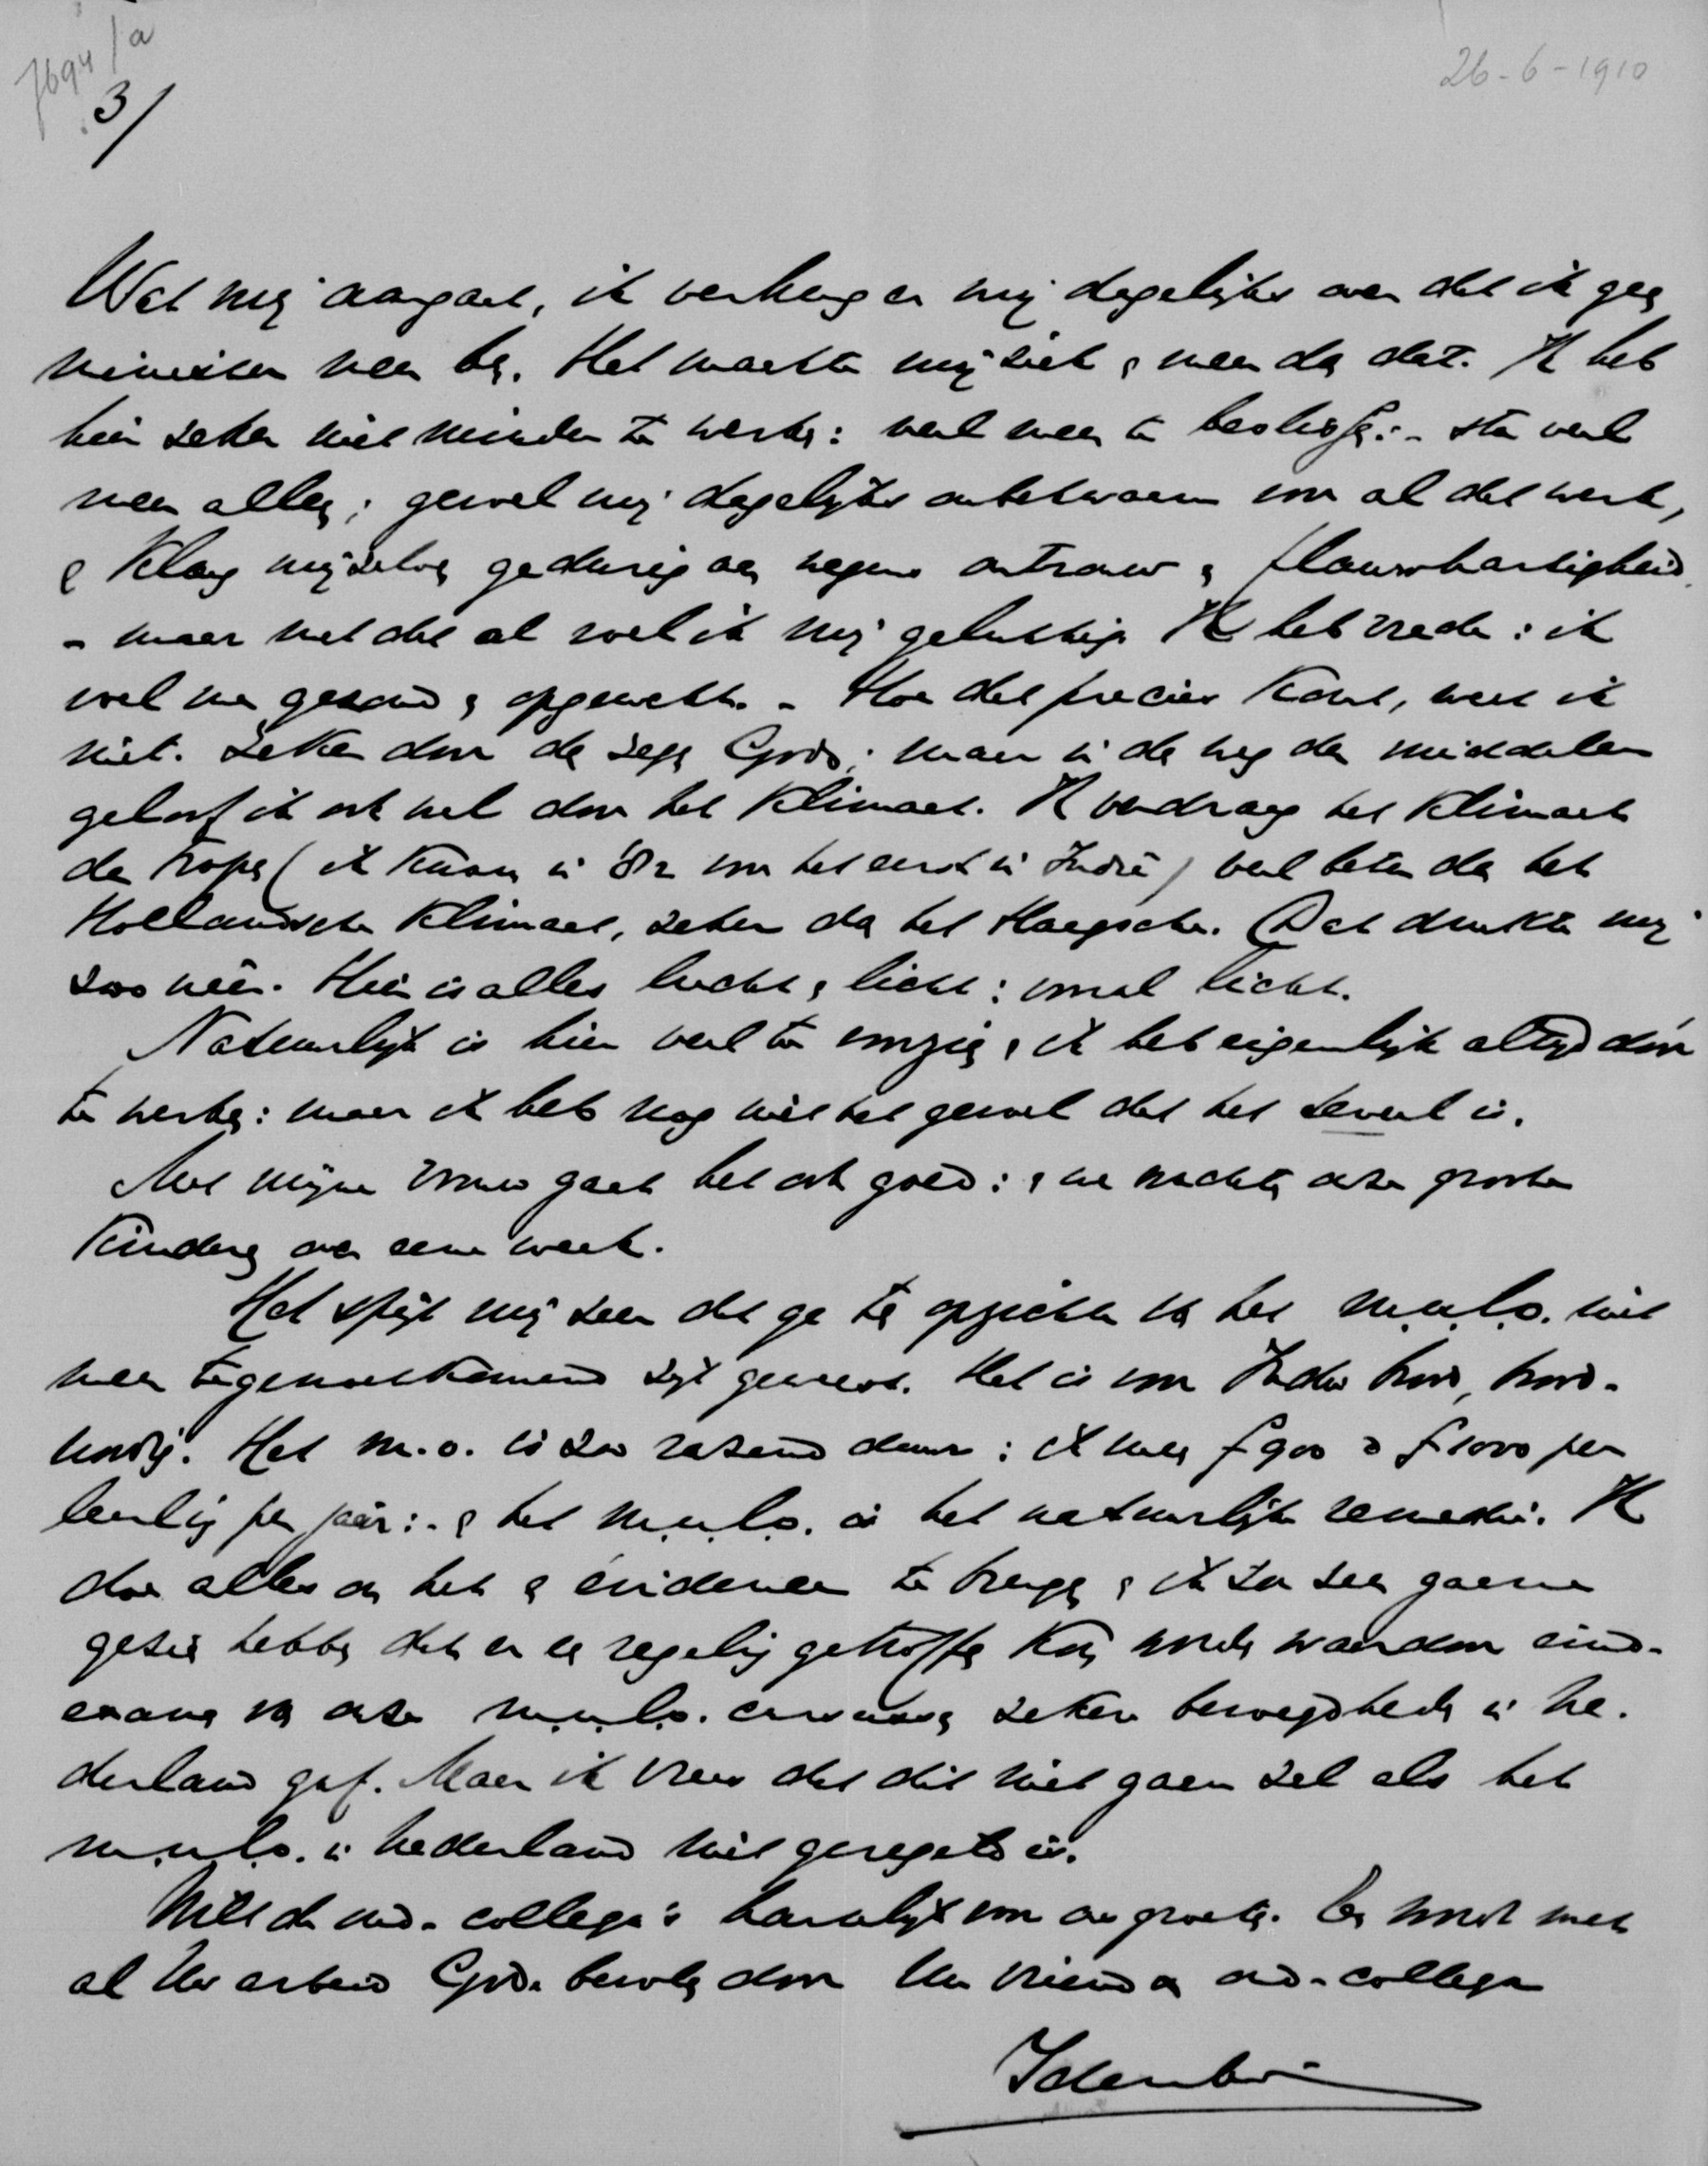 7694/a
3/
26-6-1910
Wat mij aangaat, ik verheug er mij dagelijks over dat ik geen
minister meer ben. Het maakte mij ziek en meer dan dat. Ik heb
hier zeker niet minder te werken: veel meer te beslissen:- sta veel
meer alleen; gevoel mij dagelijks onbekwaam voor al dat werk,
en klaag mijzelven gedurig aan wegens ontrouw en flauwhartigheid
- maar met dat al voel ik mij gelukkig. Ik heb vrede: ik
voel me gezond en opgewekt. - Hoe dat precies komt, weet ik
niet. Zeker door den zegen Gods; maar in den weg der middelen
geloof ik ook wel door het klimaat. Ik verdraag het klimaat
der tropen (ik kwam in '82 voor het eerst in Indië) veel beter dan het
Hollandsche klimaat, zeker dan het Haagsche. Dat drukte mij
zoo neêr. Hier is alles lucht en licht: vooral licht.
Natuurlijk is hier veel te voorzien en ik heb eigenlijk altijd dóór
te werken: maar ik heb nog niet het gevoel dat het te veel is.
Met mijne vrouw gaat het ook goed: en we wachten onze groote
kinderen over eene week.
Het spijt mij zeer dat ge ten opzichte van het m.u.l.o. niet
meer tegemoetkomend zijt geweest. Het is voor Indië hoog, hoog-
noodig. Het m.o. is zoo razend duur: ik meen f 900 à f 1000 per
leerling per jaar:- en het m.u.l.o. is het natuurlijke remedie. Ik
doe alles om het en évidence te brengen en ik zou zeer gaarne
gezien hebben dat er een regeling getroffen kon worden waardoor eind-
examen van onze m.u.l.o. cursussen zekere bevoegdheden in Ne-
derland gaf. Maar ik vrees dat dit niet gaan zal als het
m.u.l.o. in Nederland niet geregeld is.
Wil de oud-collega's hartelijk voor ons groeten. En wordt met
al Uw arbeid Gode bevolen door Uw vriend en oud-collega
Idenburg